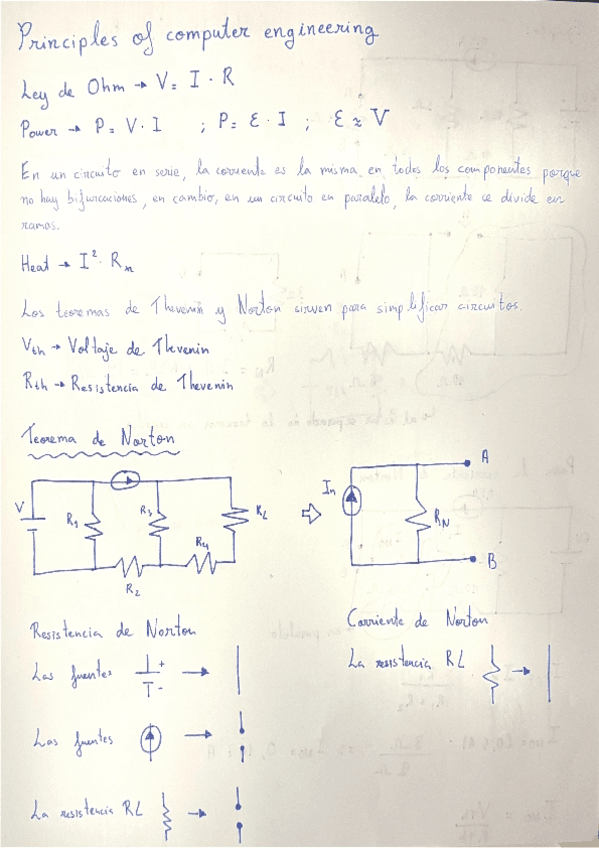 Principles of computer engineering
Ley de Ohm → V = I · R
Power → P = V · I ; P = Ɛ · I ; Ɛ ≈ V
En un circuito en serie, la corriente es la misma en todos los componentes porque
no hay bifurcaciones, en cambio, en un circuito en paralelo, la corriente se divide en
ramas.
Heat → I² · Rn
Los teoremas de Thevenin y Norton sirven para simplificar circuitos.
Vth → Voltaje de Thevenin
Rth → Resistencia de Thevenin
Teorema de Norton
V R1 R3 RL R4 R2
In RN A B
Resistencia de Norton
Las fuentes + - →
Las fuentes →
La resistencia RL →
Corriente de Norton
La resistencia RL →